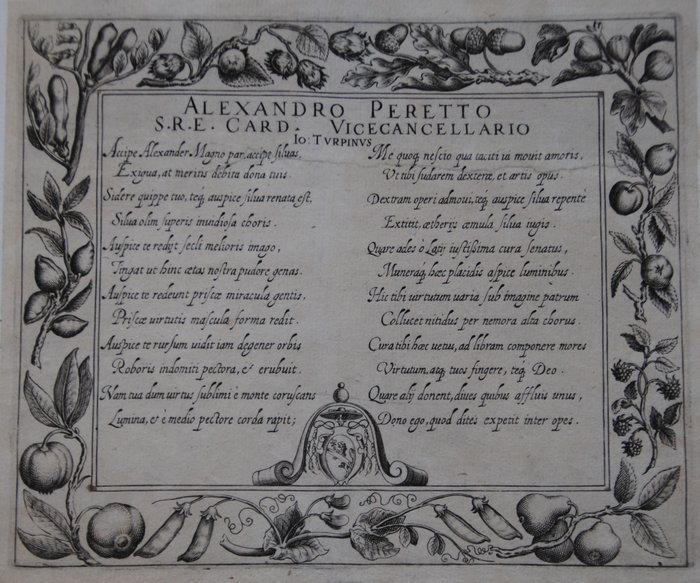 ALEXANDRO PERETTO
S.R.E. CARD. VICECANCELLARIO
IO: TVRPINVS
Accipe Alexander Magno par, accipe siluas,
Exigua, at meritis debita dona tuis.
Sidere quippe tuo, teq; auspice silua renata est,
Silua olim superis inuidiosa choris.
Auspice te redijt secli melioris imago,
Tingat ut hinc ætas nostra pudore genas.
Auspice te redeunt priscæ miracula gentis,
Priscæ virtutis mascula forma redit.
Auspice te rursum uidit iam degener orbis
Roboris indomiti pectora, et erubuit.
Nam tua dum virtus sublimi e monte coruscans
Lumina, et è medio pectore corda rapit;
Me quoq; nescio qua taciti ui mouit amoris,
Ut tibi sudarem dexteræ, et artis opus.
Dextram operi admoui, teq; auspice silua repente
Extitit, ætherijs æmula silua iugis.
Quare ades ò Latij iustissima cura senatus,
Muneraq; hæc placidis aspice luminibus.
Hic tibi virtutum uaria sub imagine patrum
Collucet nitidus per nemora alta chorus.
Cura tibi hæc uetus, ad libram componere mores
Virtutum, atq; tuos fingere, teq; Deo.
Quare alij donent, diues quibus affluis unus,
Dono ego, quod dites expetit inter opes.